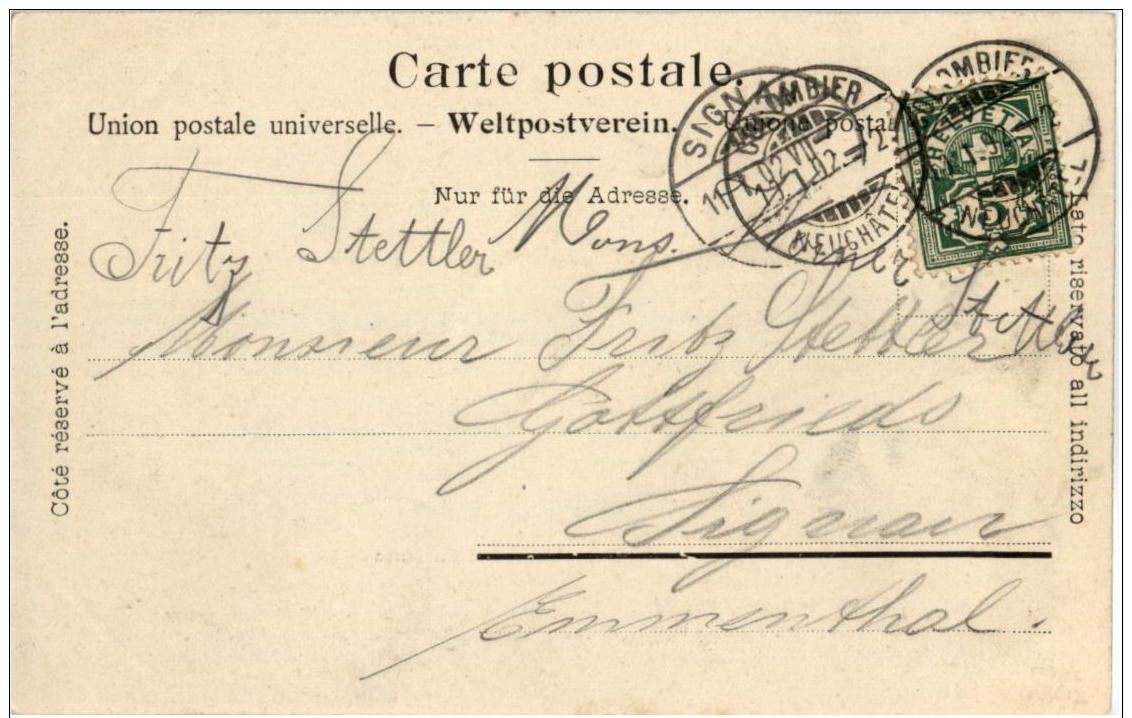 Carte postale.
Union postale universelle. – Weltpostverein. – Unione postal
Nur für die Adresse.
Côté réservé à l'adresse.
Lato riservato all indirizzo
SIGNAU
COLOMBIER
NEUCHÂTEL
COLOMBIER
HELVETIA
Fritz Stettler Mons.
Stettler
Monsieur Fritz Stettler
Gottfrieds
Signau
Emmenthal.